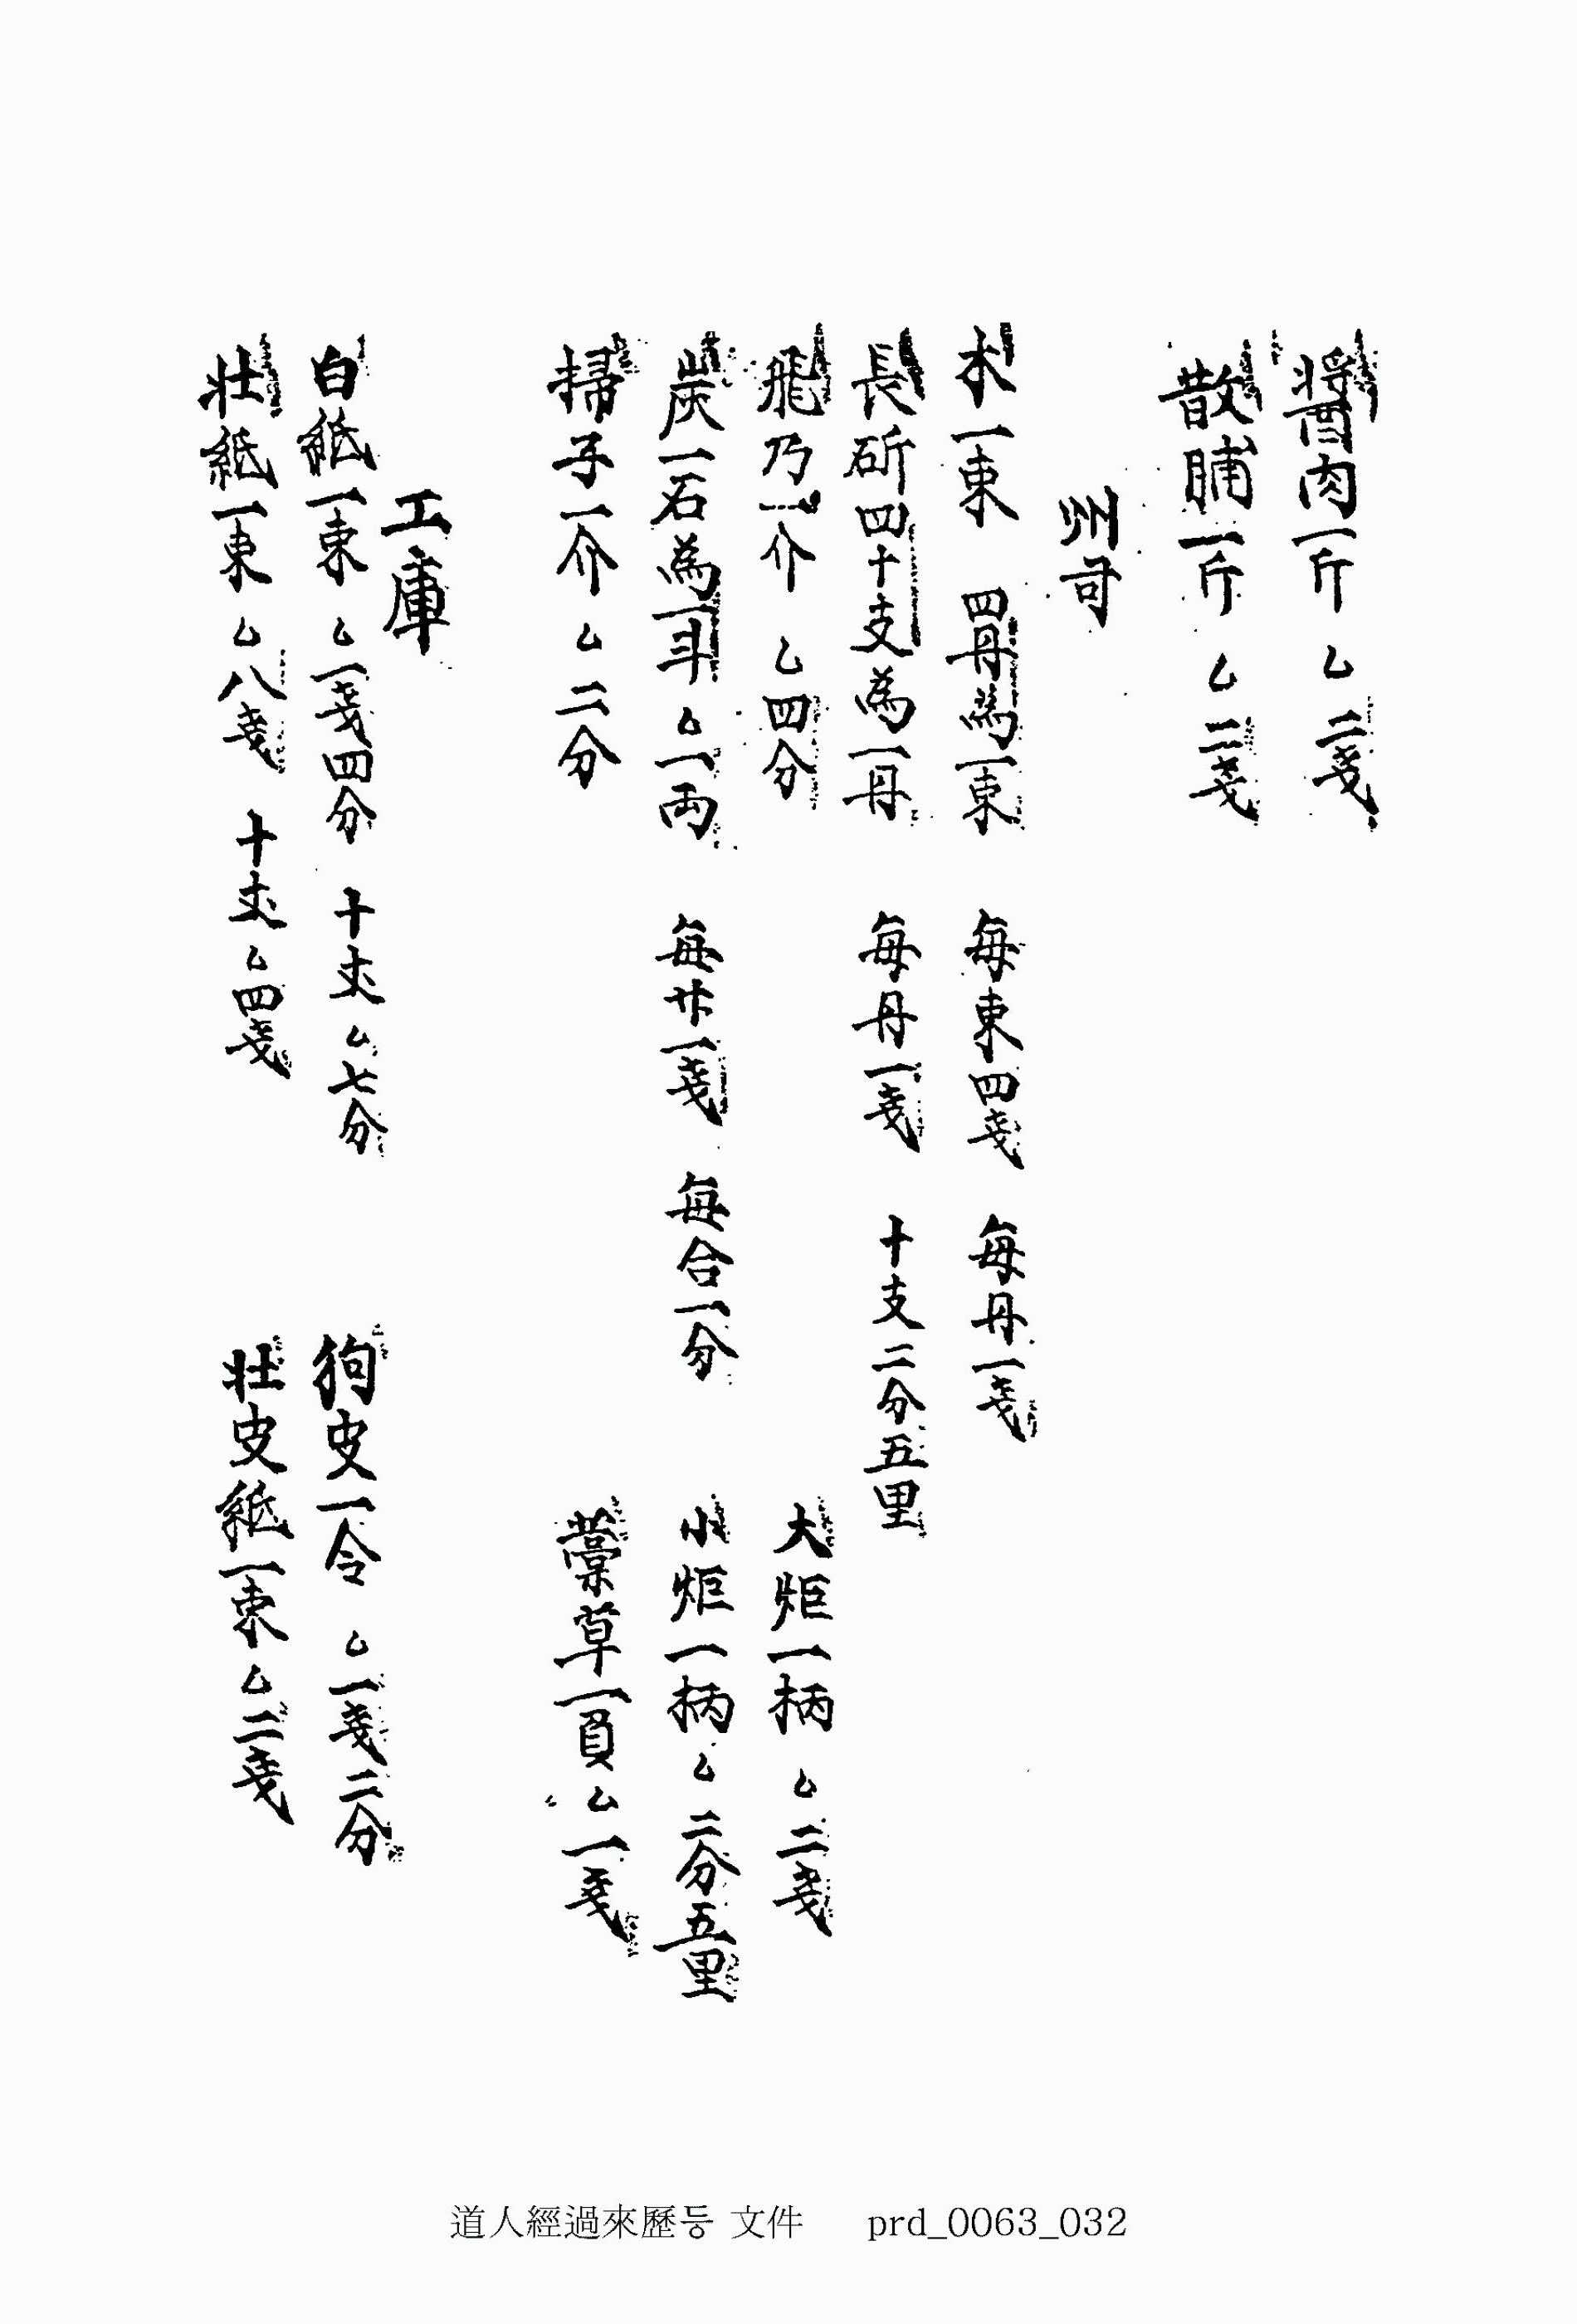 醬肉一斤 乙 二戔
散脯一斤 乙 二戔
州司
木一束 四丹為一束 每束四戔 每丹一戔
長斫四十支為一丹 每丹一戔 十支二分五里
飛乃一介 乙四分 大炬一柄 乙二戔
炭一石為一斗 乙一両 每升一戔 每合一分 小炬一柄 乙 二分五里
掃子一介 乙 二分 藁草一負 乙 一戔
工庫
白紙一束 乙一戔四分 十丈 乙七分 狗皮一令 乙一戔二分
壮紙一束 乙八戔 十丈 乙四戔 壮皮紙一束 乙二戔
道人經過來歷등 文件 prd_0063_032